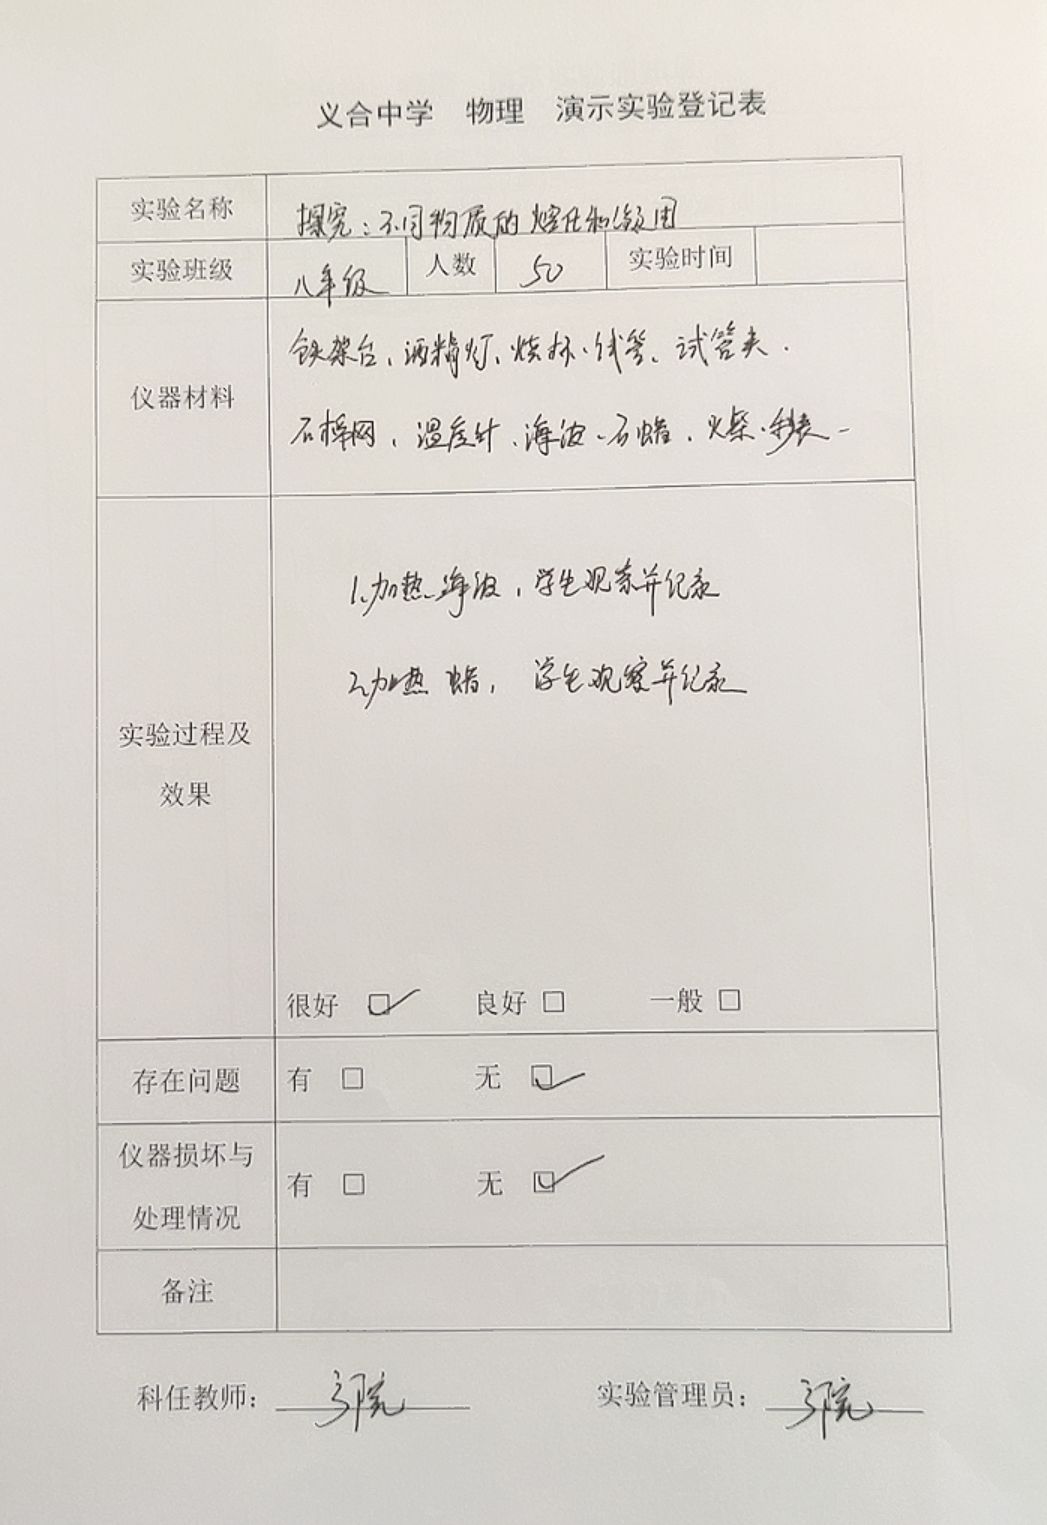 义合中学 物理 演示实验登记表
实验名称 探究:不同物质的熔化和凝固
实验班级 八年级 人数 50 实验时间
仪器材料
铁架台、酒精灯、烧杯、试管、试管夹.
石棉网、温度计、海波、石蜡、火柴、秒表-
实验过程及
效果
1.加热海波,学生观察并纪录
2.加热蜡,学生观察并纪录
很好 ☑ 良好 □ 一般 □
存在问题 有 □ 无 ☑
仪器损坏与
处理情况
有 □ 无 ☑
备注
科任教师: 实验管理员: